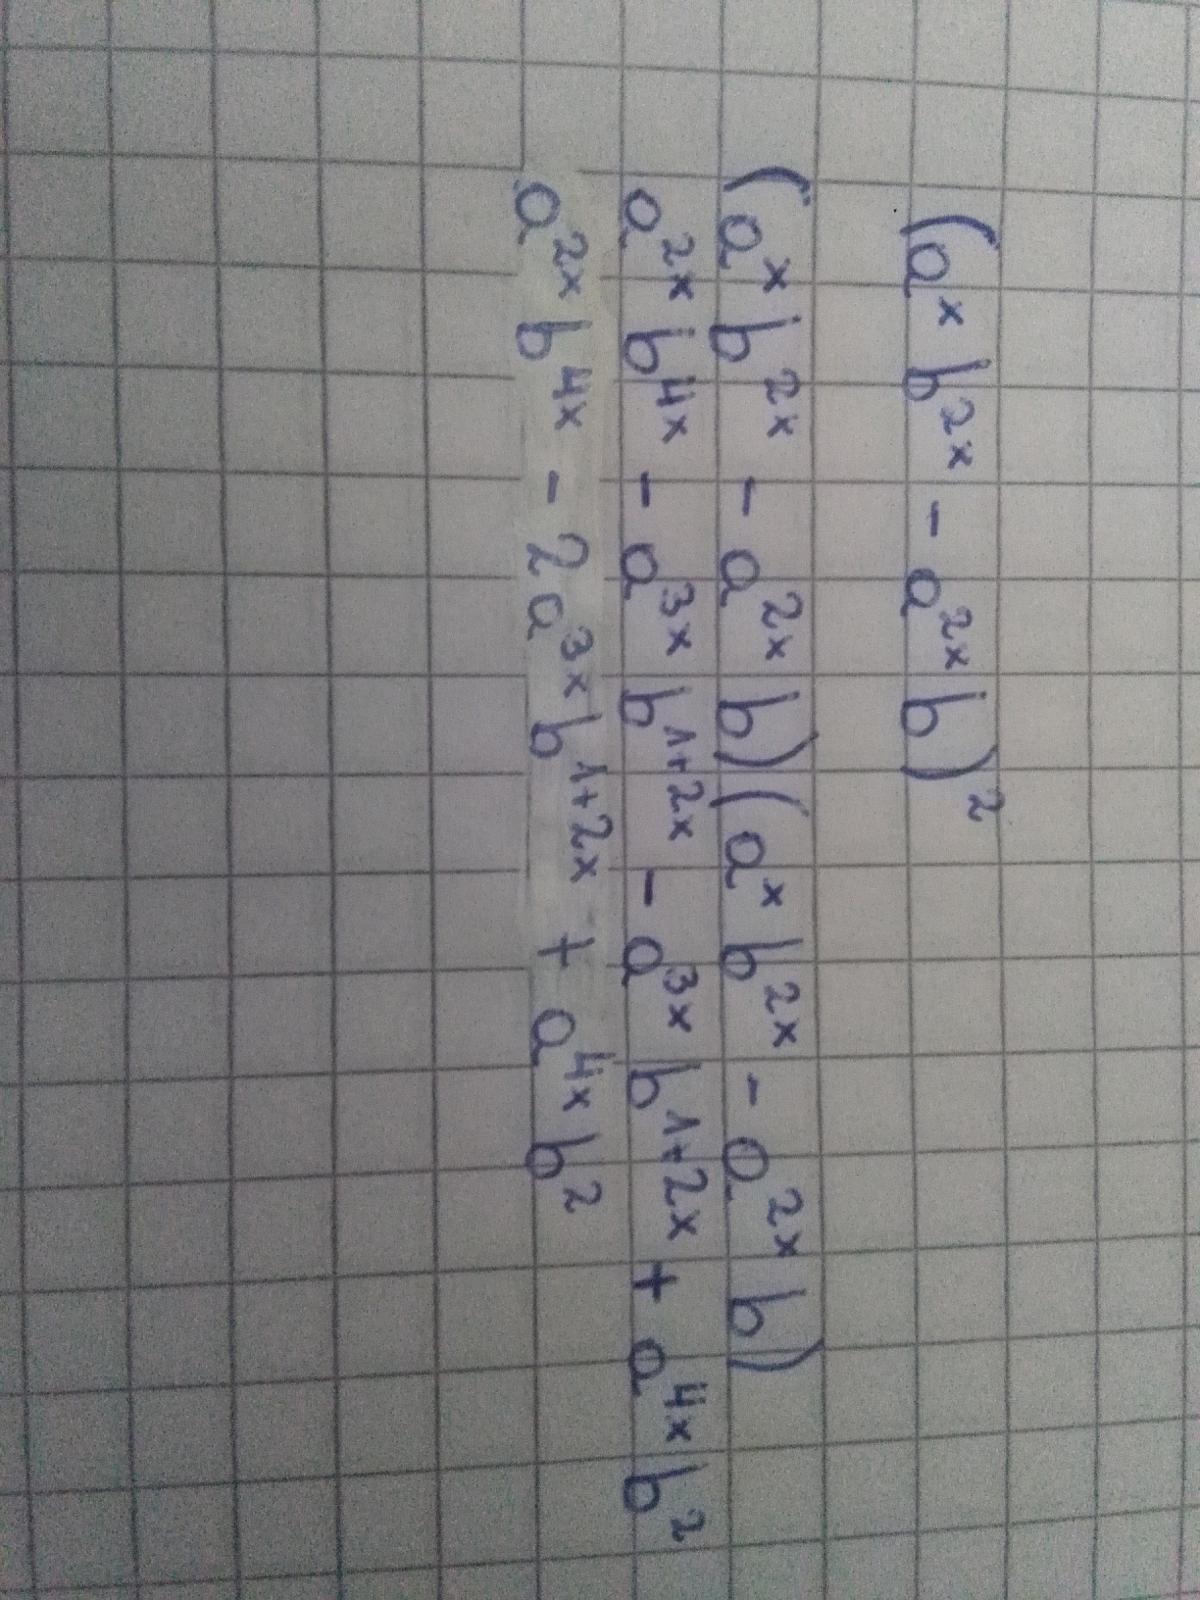 (a^x b^{2x} - a^{2x} b)^2
(a^x b^{2x} - a^{2x} b)(a^x b^{2x} - a^{2x} b)
a^{2x} b^{4x} - a^{3x} b^{1+2x} - a^{3x} b^{1+2x} + a^{4x} b^2
a^{2x} b^{4x} - 2a^{3x} b^{1+2x} + a^{4x} b^2